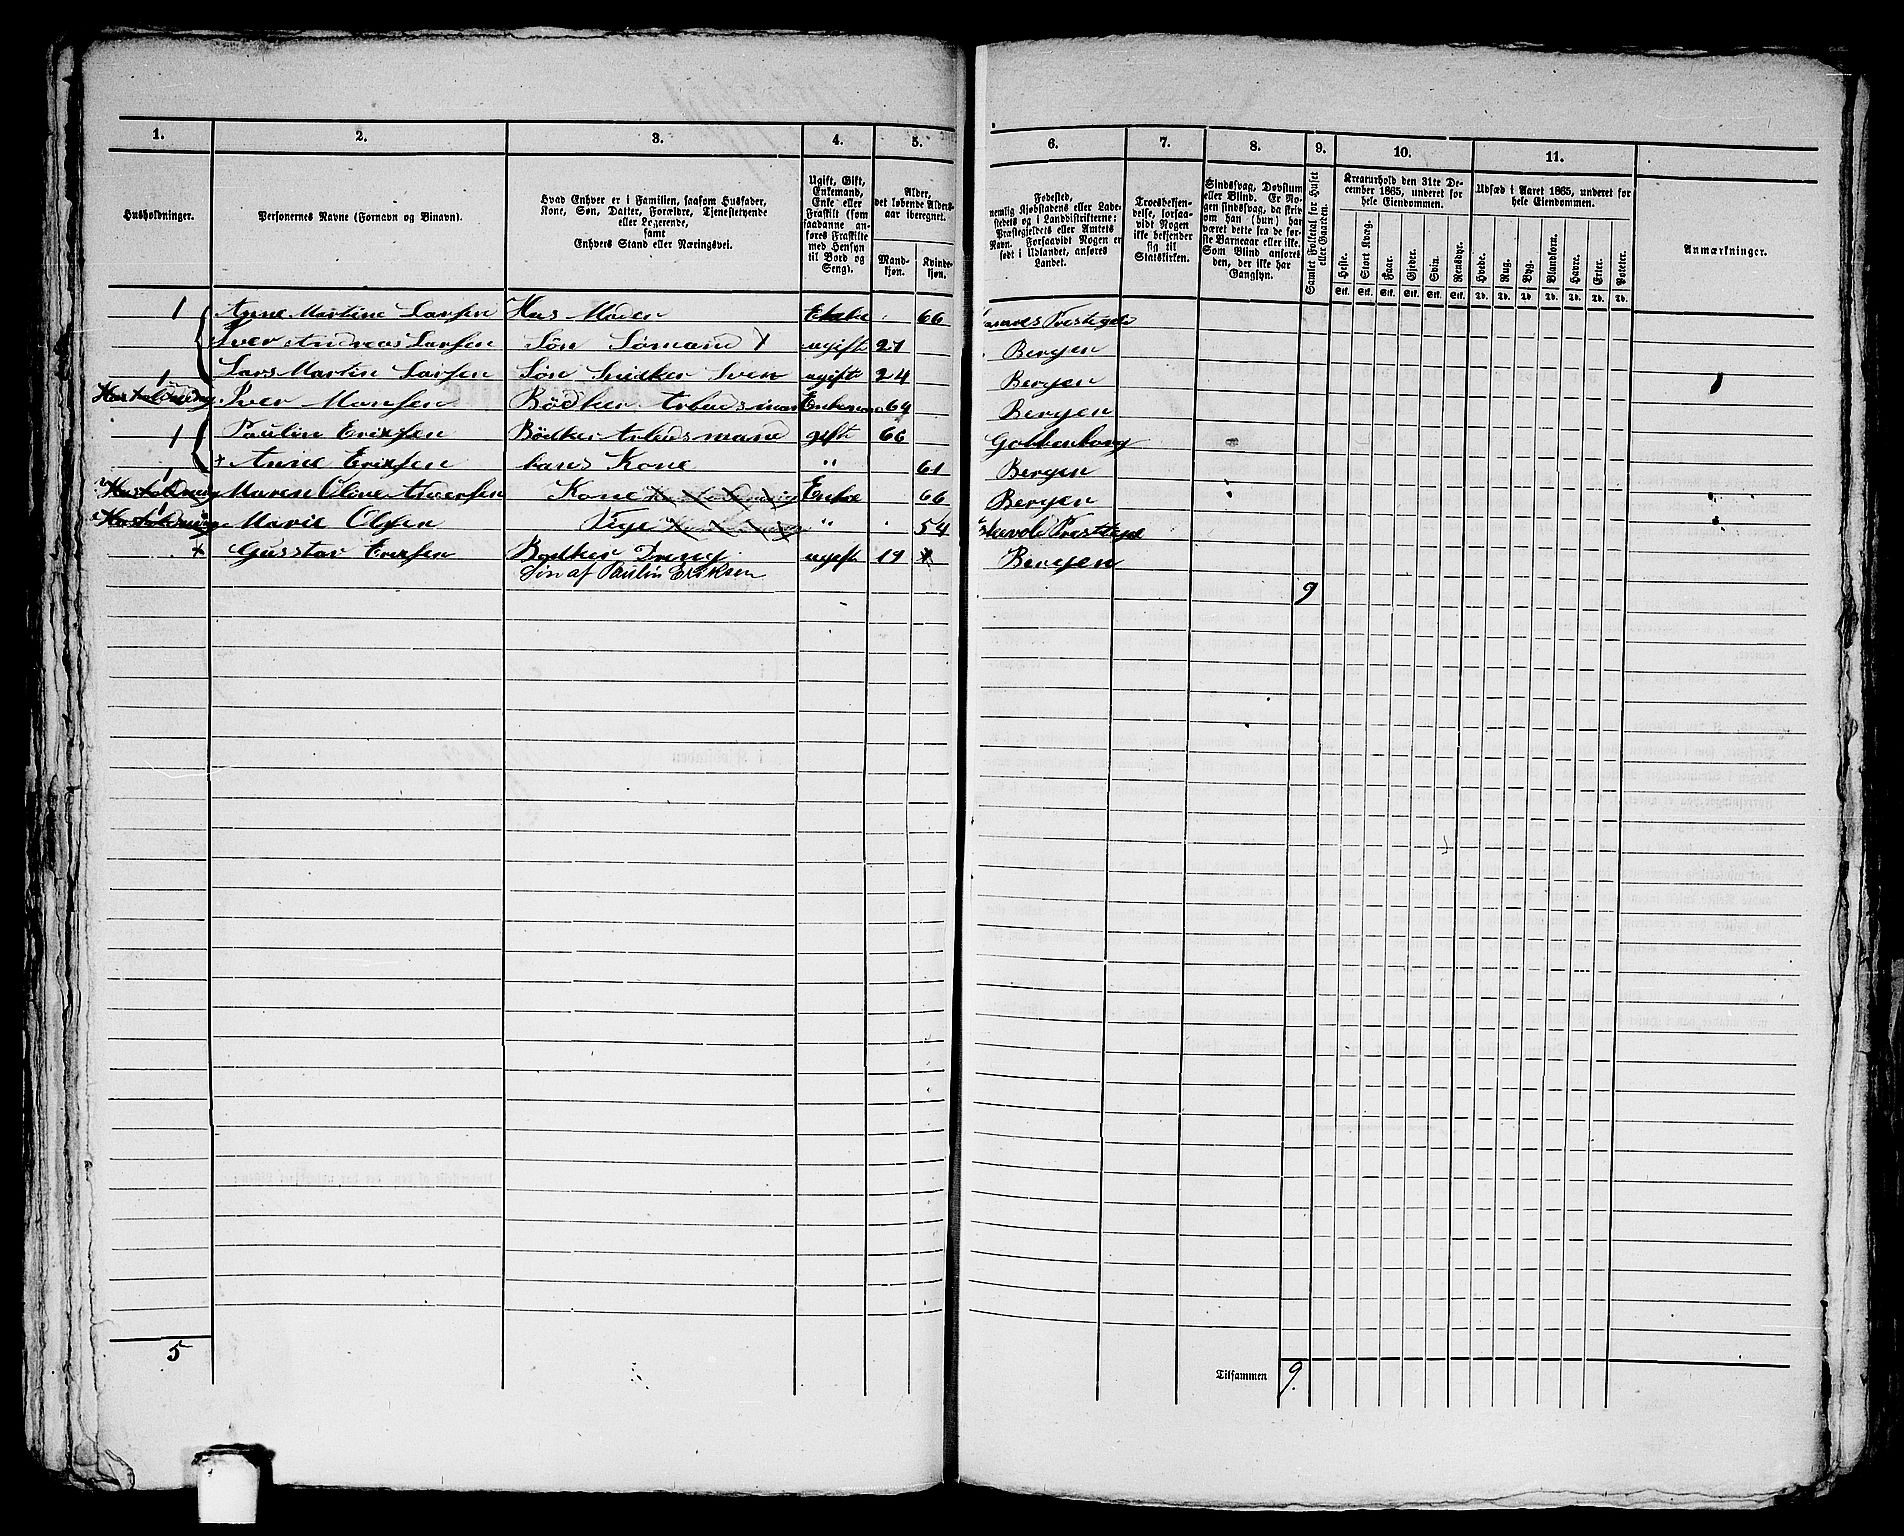 1. 2. 3. 4. 5. 6. 7. 8. 9. 10. 11.
Husholdninger.
Personernes Navne (Fornavn og Binavn).
Hvad Enhver er i Familien, saasom Husfader,
Kone, Søn, Datter, Forældre, Tjenestetyende
eller Logerende,
samt
Enhvers Stand eller Næringsvei.
Ugift, Gift,
Enkemand,
Enke eller
Fraskilt (som
saadanne an-
føres Fraskilte
med Hensyn
til Bord og
Seng).
Alder,
det løbende Alders-
aar iberegnet.
Mand-
kjøn.
Kvinde-
kjøn.
Fødested,
nemlig Kjøbstadens eller Lade-
stedets og i Landdistrikterne:
Præstegjeldets eller Amtets
Navn. Forsaavidt Nogen er
født i Udlandet, anføres
Landet.
Troesbekjen-
delse, forsaa-
vidt Nogen
ikke bekjender
sig til
Statskirken.
Sindssvag, Døvstum
eller Blind. Er No-
gen sindssvag, da skriv
om han (hun) har
været dette fra de før-
ste Barneaar eller ikke.
Som Blind anføres
den, der ikke har
Gangsyn.
Samlet Folketal for Huset
eller Gaarden.
Kreaturhold den 31te De-
cember 1865, underet for
hele Eiendommen.
Heste. Stort Kvæg. Faar. Gjeder. Svin. Rensdyr.
Stk. Stk. Stk. Stk. Stk. Stk.
Udsæd i Aaret 1865, underet for
hele Eiendommen.
Hvede. Rug. Byg. Blandkorn. Havre. Erter. Poteter.
Td. Td. Td. Td. Td. Td. Td.
Anmærkninger.
1 Anne Martine Larsen Hus Moder Enke 66 Prestegield
Iver Andreas Larsen Søn Sømand ugift 21 Bergen
Lars Martin Larsen Søn Snidker Sven ugift 24 Bergen
1 Husholdning Iver Monsen Bødker Arbeidsmand Enkeman 64 Bergen
1 Paulin Eriksen Bødker Arbeidsmand gift 66 Gottenborg
+ Anne Eriksen hans Kone " 61 Bergen
1 Husholdning Maren Oline Iversen Kone Husholdning Enke 66 Bergen
1 Husholdning Marie Olsen Pige Husholdning " 54 Prestegield
+ Gusstav Eriksen Bødker Dreng ugift 19 Bergen
Søn af Paulin Eriksen
9
5 Tilsammen 9.